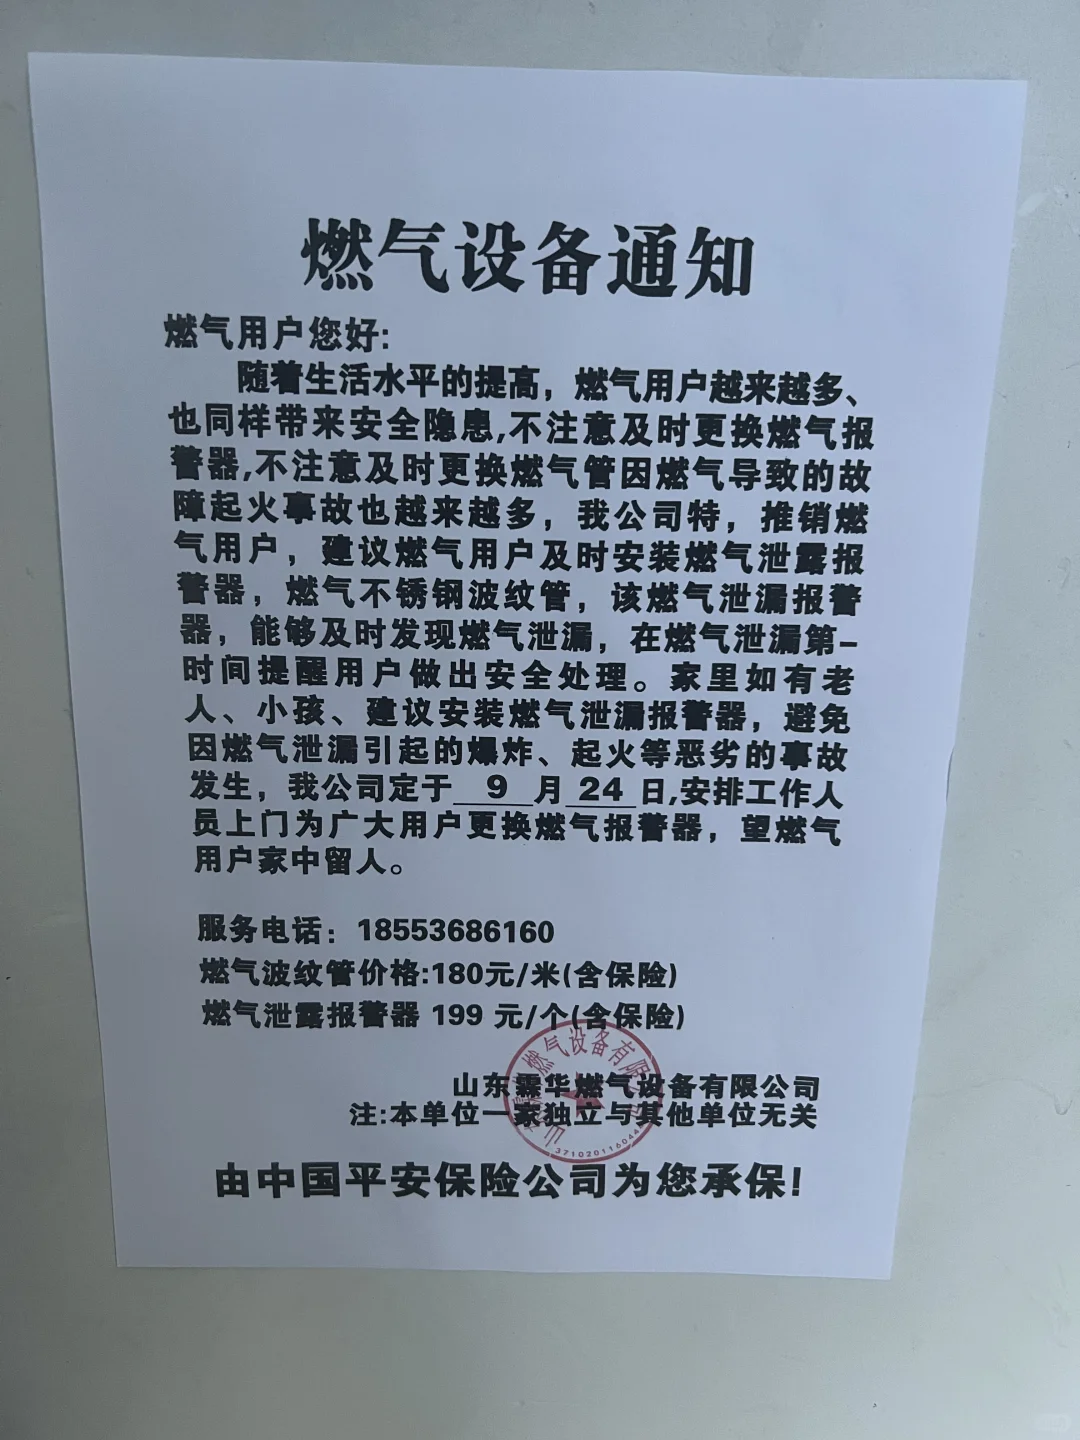 燃气设备通知
燃气用户您好:
随着生活水平的提高，燃气用户越来越多、
也同样带来安全隐患,不注意及时更换燃气报
警器,不注意及时更换燃气管因燃气导致的故
障起火事故也越来越多，我公司特，推销燃
气用户，建议燃气用户及时安装燃气泄露报
警器，燃气不锈钢波纹管，该燃气泄漏报警
器，能够及时发现燃气泄漏，在燃气泄漏第一
时间提醒用户做出安全处理。家里如有老
人、小孩、建议安装燃气泄漏报警器，避免
因燃气泄漏引起的爆炸、起火等恶劣的事故
发生，我公司定于 9 月 24 日,安排工作人
员上门为广大用户更换燃气报警器，望燃气
用户家中留人。
服务电话：18553686160
燃气波纹管价格:180元/米(含保险)
燃气泄露报警器 199 元/个(含保险)
山东霖华燃气设备有限公司
注:本单位一家独立与其他单位无关
由中国平安保险公司为您承保!